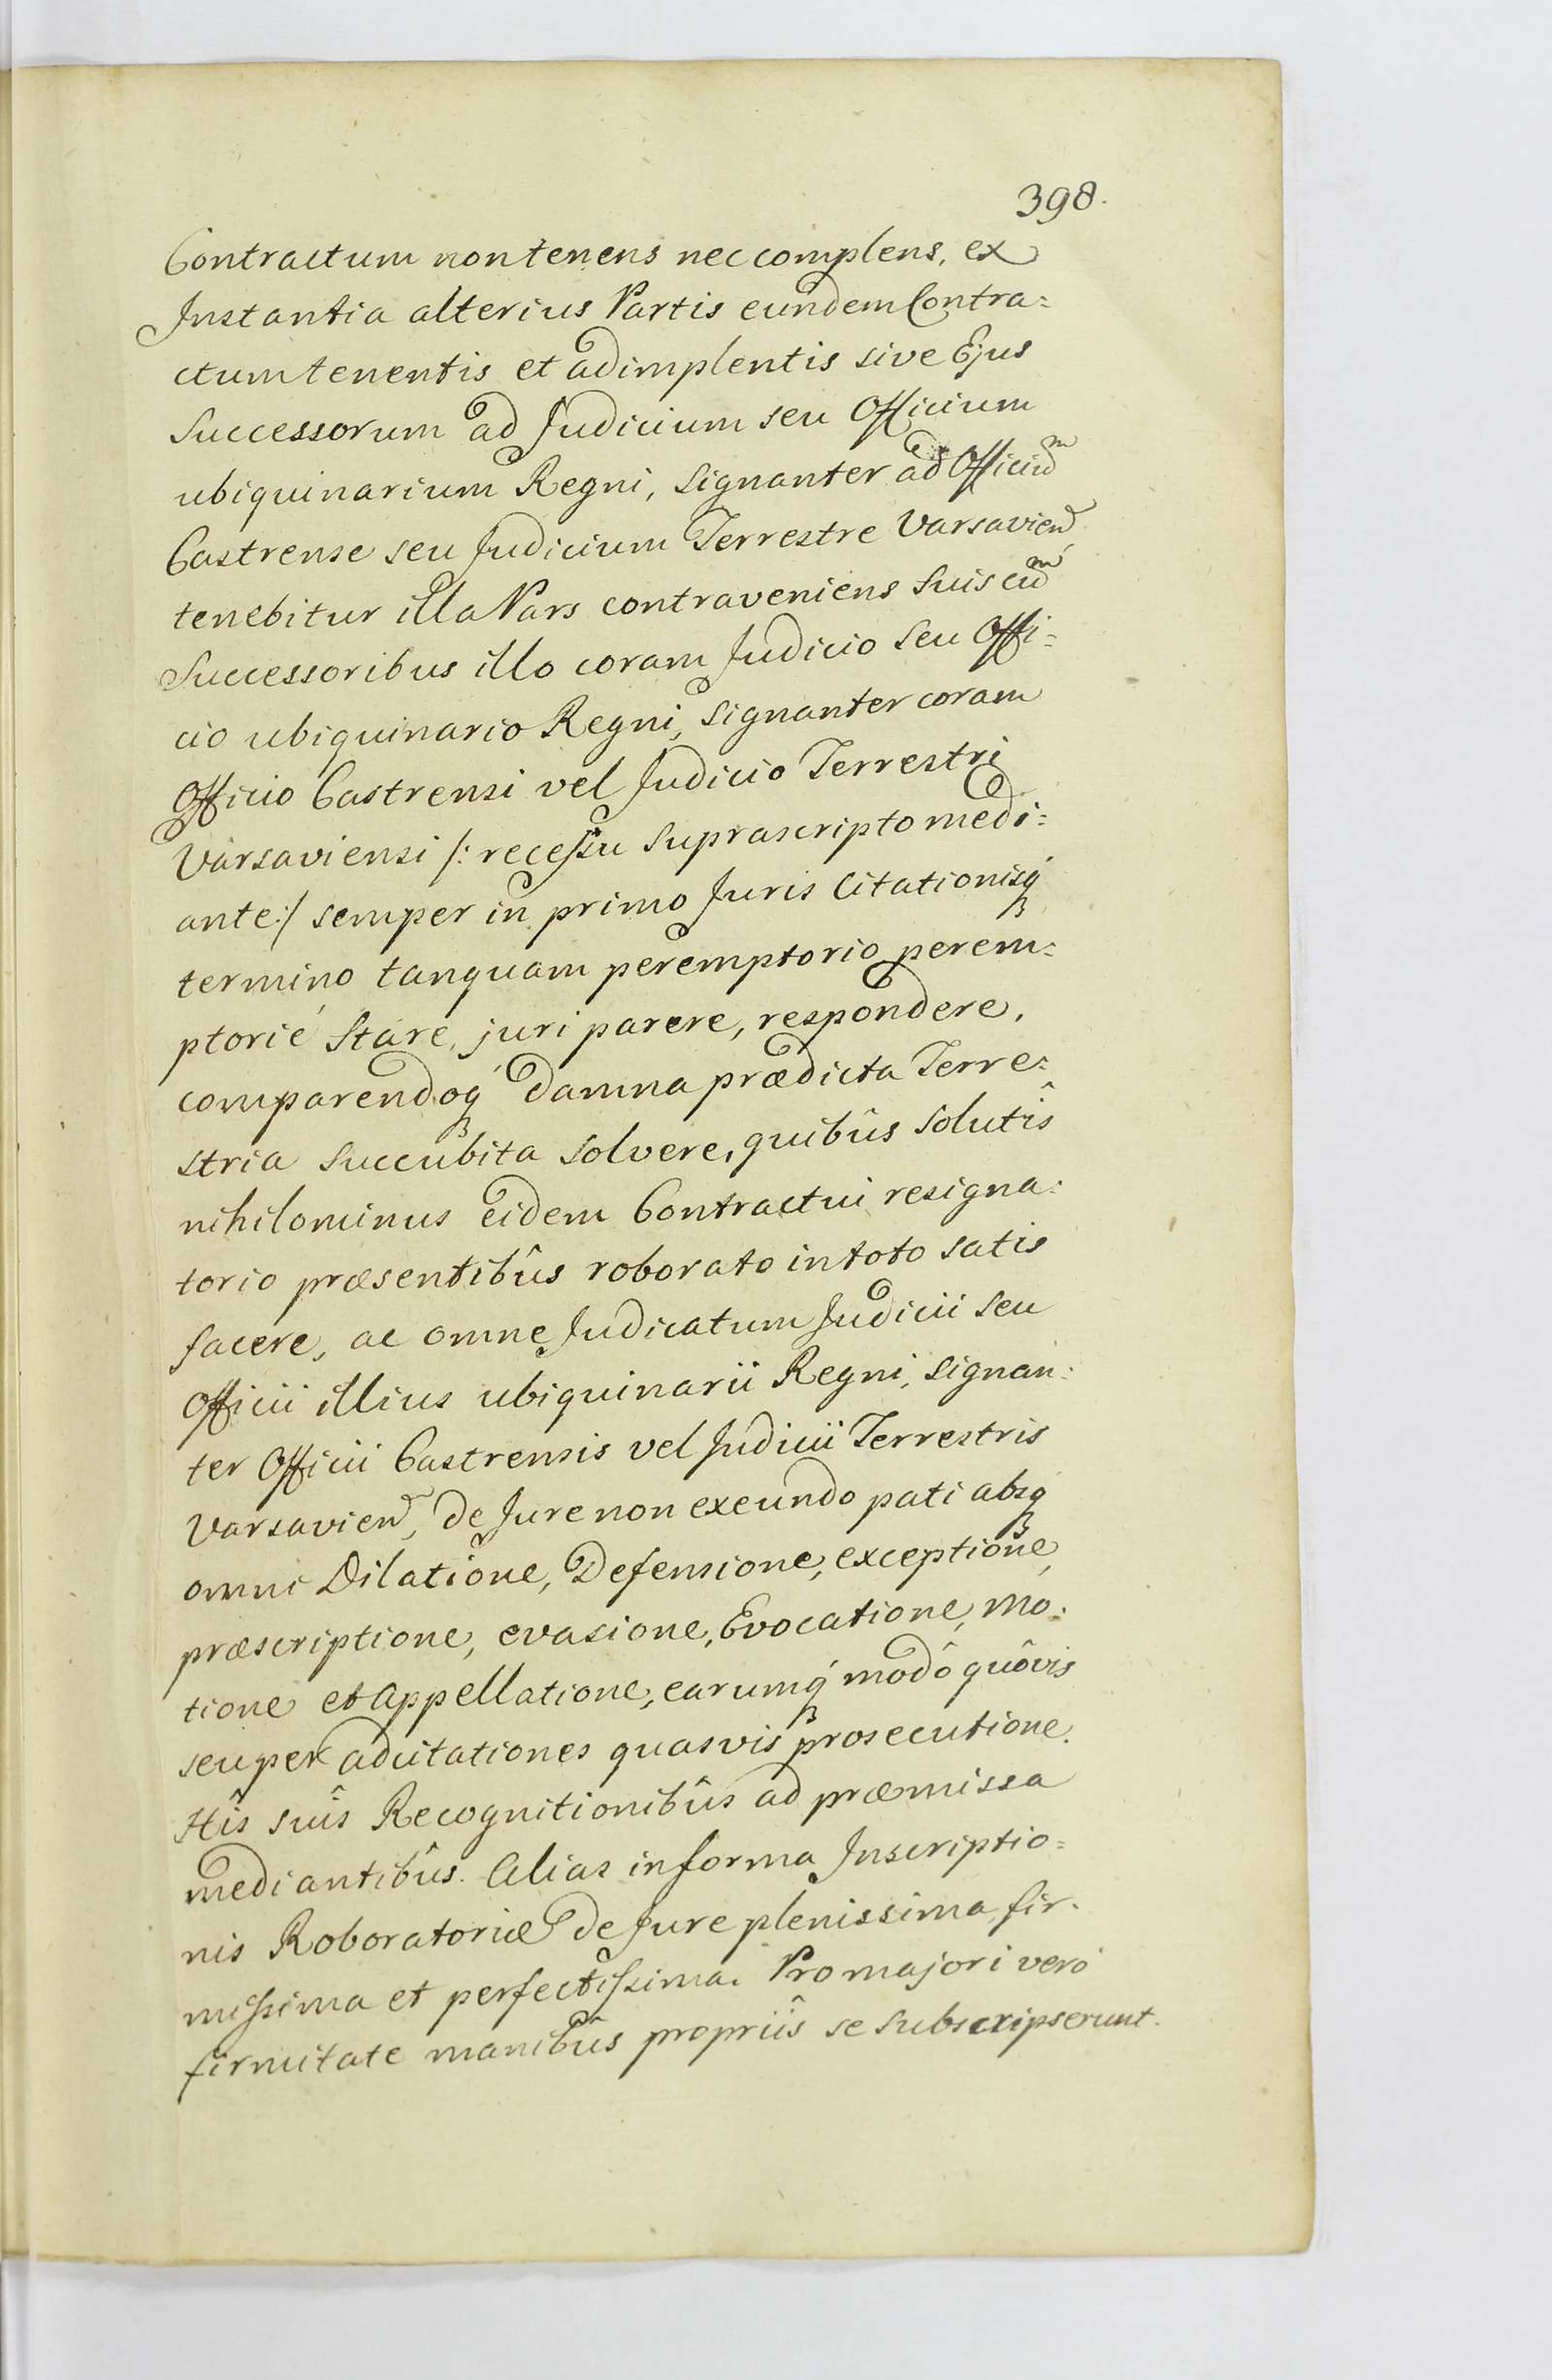 398.
Contractum non tenens nec complens, ex
Instantia alterius Partis eundem Contra=
ctum tenentis et adimplentis sive Ejus
Successorum ad Judicium seu Officium
ubiquinarium Regni, signanter ad Officiũᵐ
Castrense seu Judicium Terrestre Varsavien̄
tenebitur illa Pars contraveniens suis cũᵐ
Successoribus illo coram Judicio seu Offi=
cio ubiquinario Regni, signanter coram
Officio Castrensi vel Judicio Terrestri
Varsaviensi /: recessu suprascripto medi=
ante :/ semper in primo Juris Citationisq́
termino tanquam peremptorio perem=
ptorié stare, juri parere, respondere,
comparendoq́ damna prædicta Terre=
stria succubita solvere, quibûs solutîs
nihilominus eidem Contractui resigna=
torio præsentibûs roborato in toto satis
facere, ac omne Judicatum Judicii seu
Officii illius ubiquinarii Regni, signan=
ter Officii Castrensis vel Judicii Terrestris
Varsavien̄, de Jure non exeundo pati absq́
omni Dilatione, Defensione, exceptione,
præscriptione, evasione, Evocatione, mo=
tione et appellatione, earumq́ modô quôvis
seu per adcitationes quasvis prosecutione.
Hîs suîs Recognitionibûs ad præmissa
mediantibûs. Alias in forma Inscriptio=
nis Roboratoriæ de Jure plenissima, fir=
missima et perfectissima. Pro majori veró
firmitate manibûs propriîs se subscripserunt.